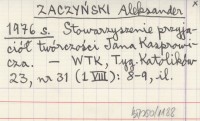 ZACZYŃSKI Aleksander
1976 s. Stowarzyszenie przyja-
ciół twórczości Jana Kasprowi-
cza. — WTK, Tyg. Katolików
23, nr 31 (1 VIII): 8-9, il.